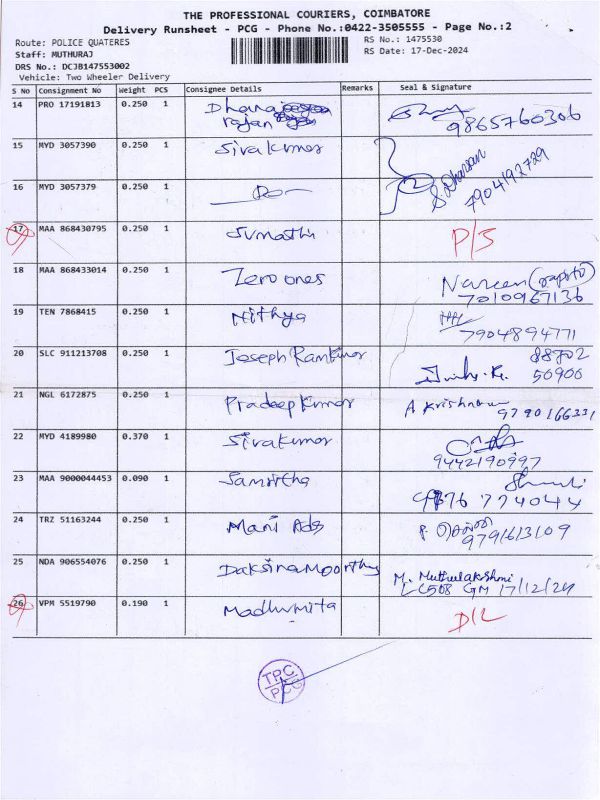 THE PROFESSIONAL COURIERS, COIMBATORE
Delivery Runsheet - PCG - Phone No.:0422-3505555 - Page No.:2
Route: POLICE QUATERES
RS No.: 1475530
Staff: MUTHURAJ
RS Date: 17-Dec-2024
DRS No.: DCJB147553002
Vehicle: Two Wheeler Delivery
S No Consignment No Weight PCS Consignee Details Remarks Seal & Signature
14 PRO 17191813 0.250 1 Dhana
rajan 9865760306
15 MYD 3057390 0.250 1 Sivakumar
S. Dharsan
7904192729
16 MYD 3057379 0.250 1
17 MAA 868430795 0.250 1 Sumathi P/S
18 MAA 868433014 0.250 1 Zero ones Nareen
7010967136
19 TEN 7868415 0.250 1 Nithya
7904894771
20 SLC 911213708 0.250 1 Joseph Ramkumar 88702
50906
21 NGL 6172875 0.250 1 Pradeep Kumar A Krishnan
9790166331
22 MYD 4189980 0.370 1 Sivakumar
9442190997
23 MAA 9000044453 0.090 1 Samritha
774044
24 TRZ 51163244 0.250 1 Mani Ads
9791613109
25 NDA 906554076 0.250 1 Daksinamoorthy M. Muthulakshmi
LC508 GM 17/12/24
26 VPM 5519790 0.190 1 Madhumita D/L
TPC
PCG